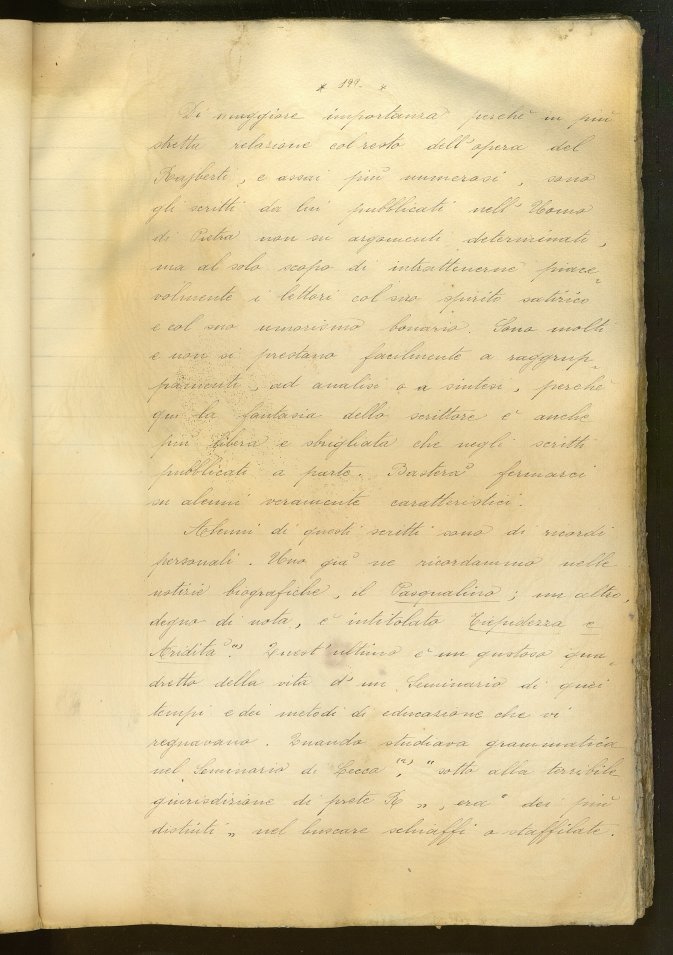 * 199. *
Di maggiore importanza perchè in più
stretta relazione col resto dell'opera del
Rajberti, e assai più numerosi, sono
gli scritti da lui pubblicati nell'Uomo
di Pietra non su argomenti determinati,
ma al solo scopo di intrattenerne piace-
volmente i lettori col suo spirito satirico
e col suo umorismo bonario. Sono molti
e non si prestano facilmente a raggrup-
pamenti, ad analisi o a sintesi, perchè
qui la fantasia dello scrittore è anche
più libera e sbrigliata che negli scritti
pubblicati a parte. Basterà fermarci
su alcuni veramente caratteristici.
Alcuni di questi scritti sono di ricordi
personali. Uno già ne ricordammo nelle
notizie biografiche, il Pasqualino; un altro,
degno di nota, è intitolato Tiepidezza e
Aridità (1). Quest'ultimo è un gustoso qua-
dretto della vita d'un Seminario di quei
tempi e dei metodi di educazione che vi
regnavano. Quando studiava grammatica
nel Seminario di Lecco (2), "sotto alla terribile
giurisdizione di prete R „, era "dei più
distinti „ nel buscare schiaffi o staffilate.